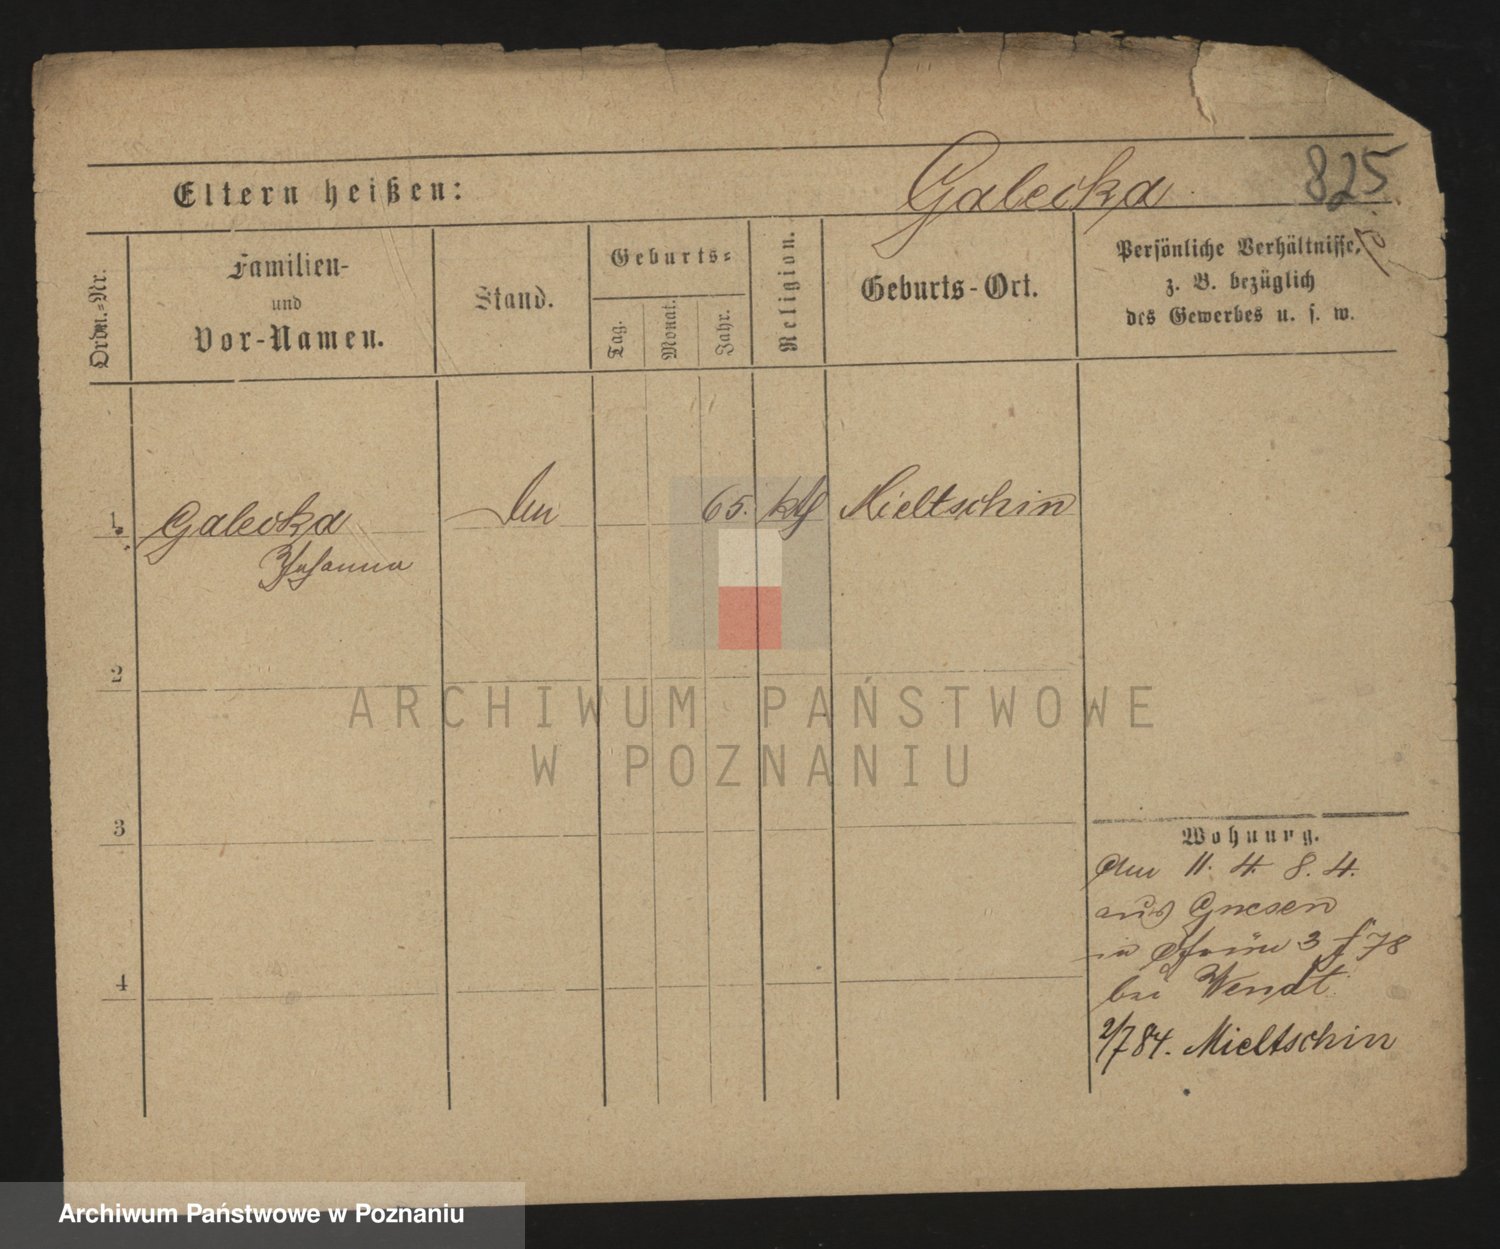 Eltern heißen:
Galecka
825
Ordn.=Nr.
Familien-
und
Vor-Namen.
Stand.
Geburts=
Tag.
Monat.
Jahr.
Religion.
Geburts-Ort.
Persönliche Verhältnisse,
z. B. bezüglich
des Gewerbes u. s. w.
1. Galecka 65. kth Mieltschin
Johanna
2
3
4
ARCHIWUM PAŃSTWOWE
W POZNANIU
Wohnung.
11. 4. 84.
aus Gnesen
in 3 78
bei Wendt
2/7 84. Mieltschin
Archiwum Państwowe w Poznaniu